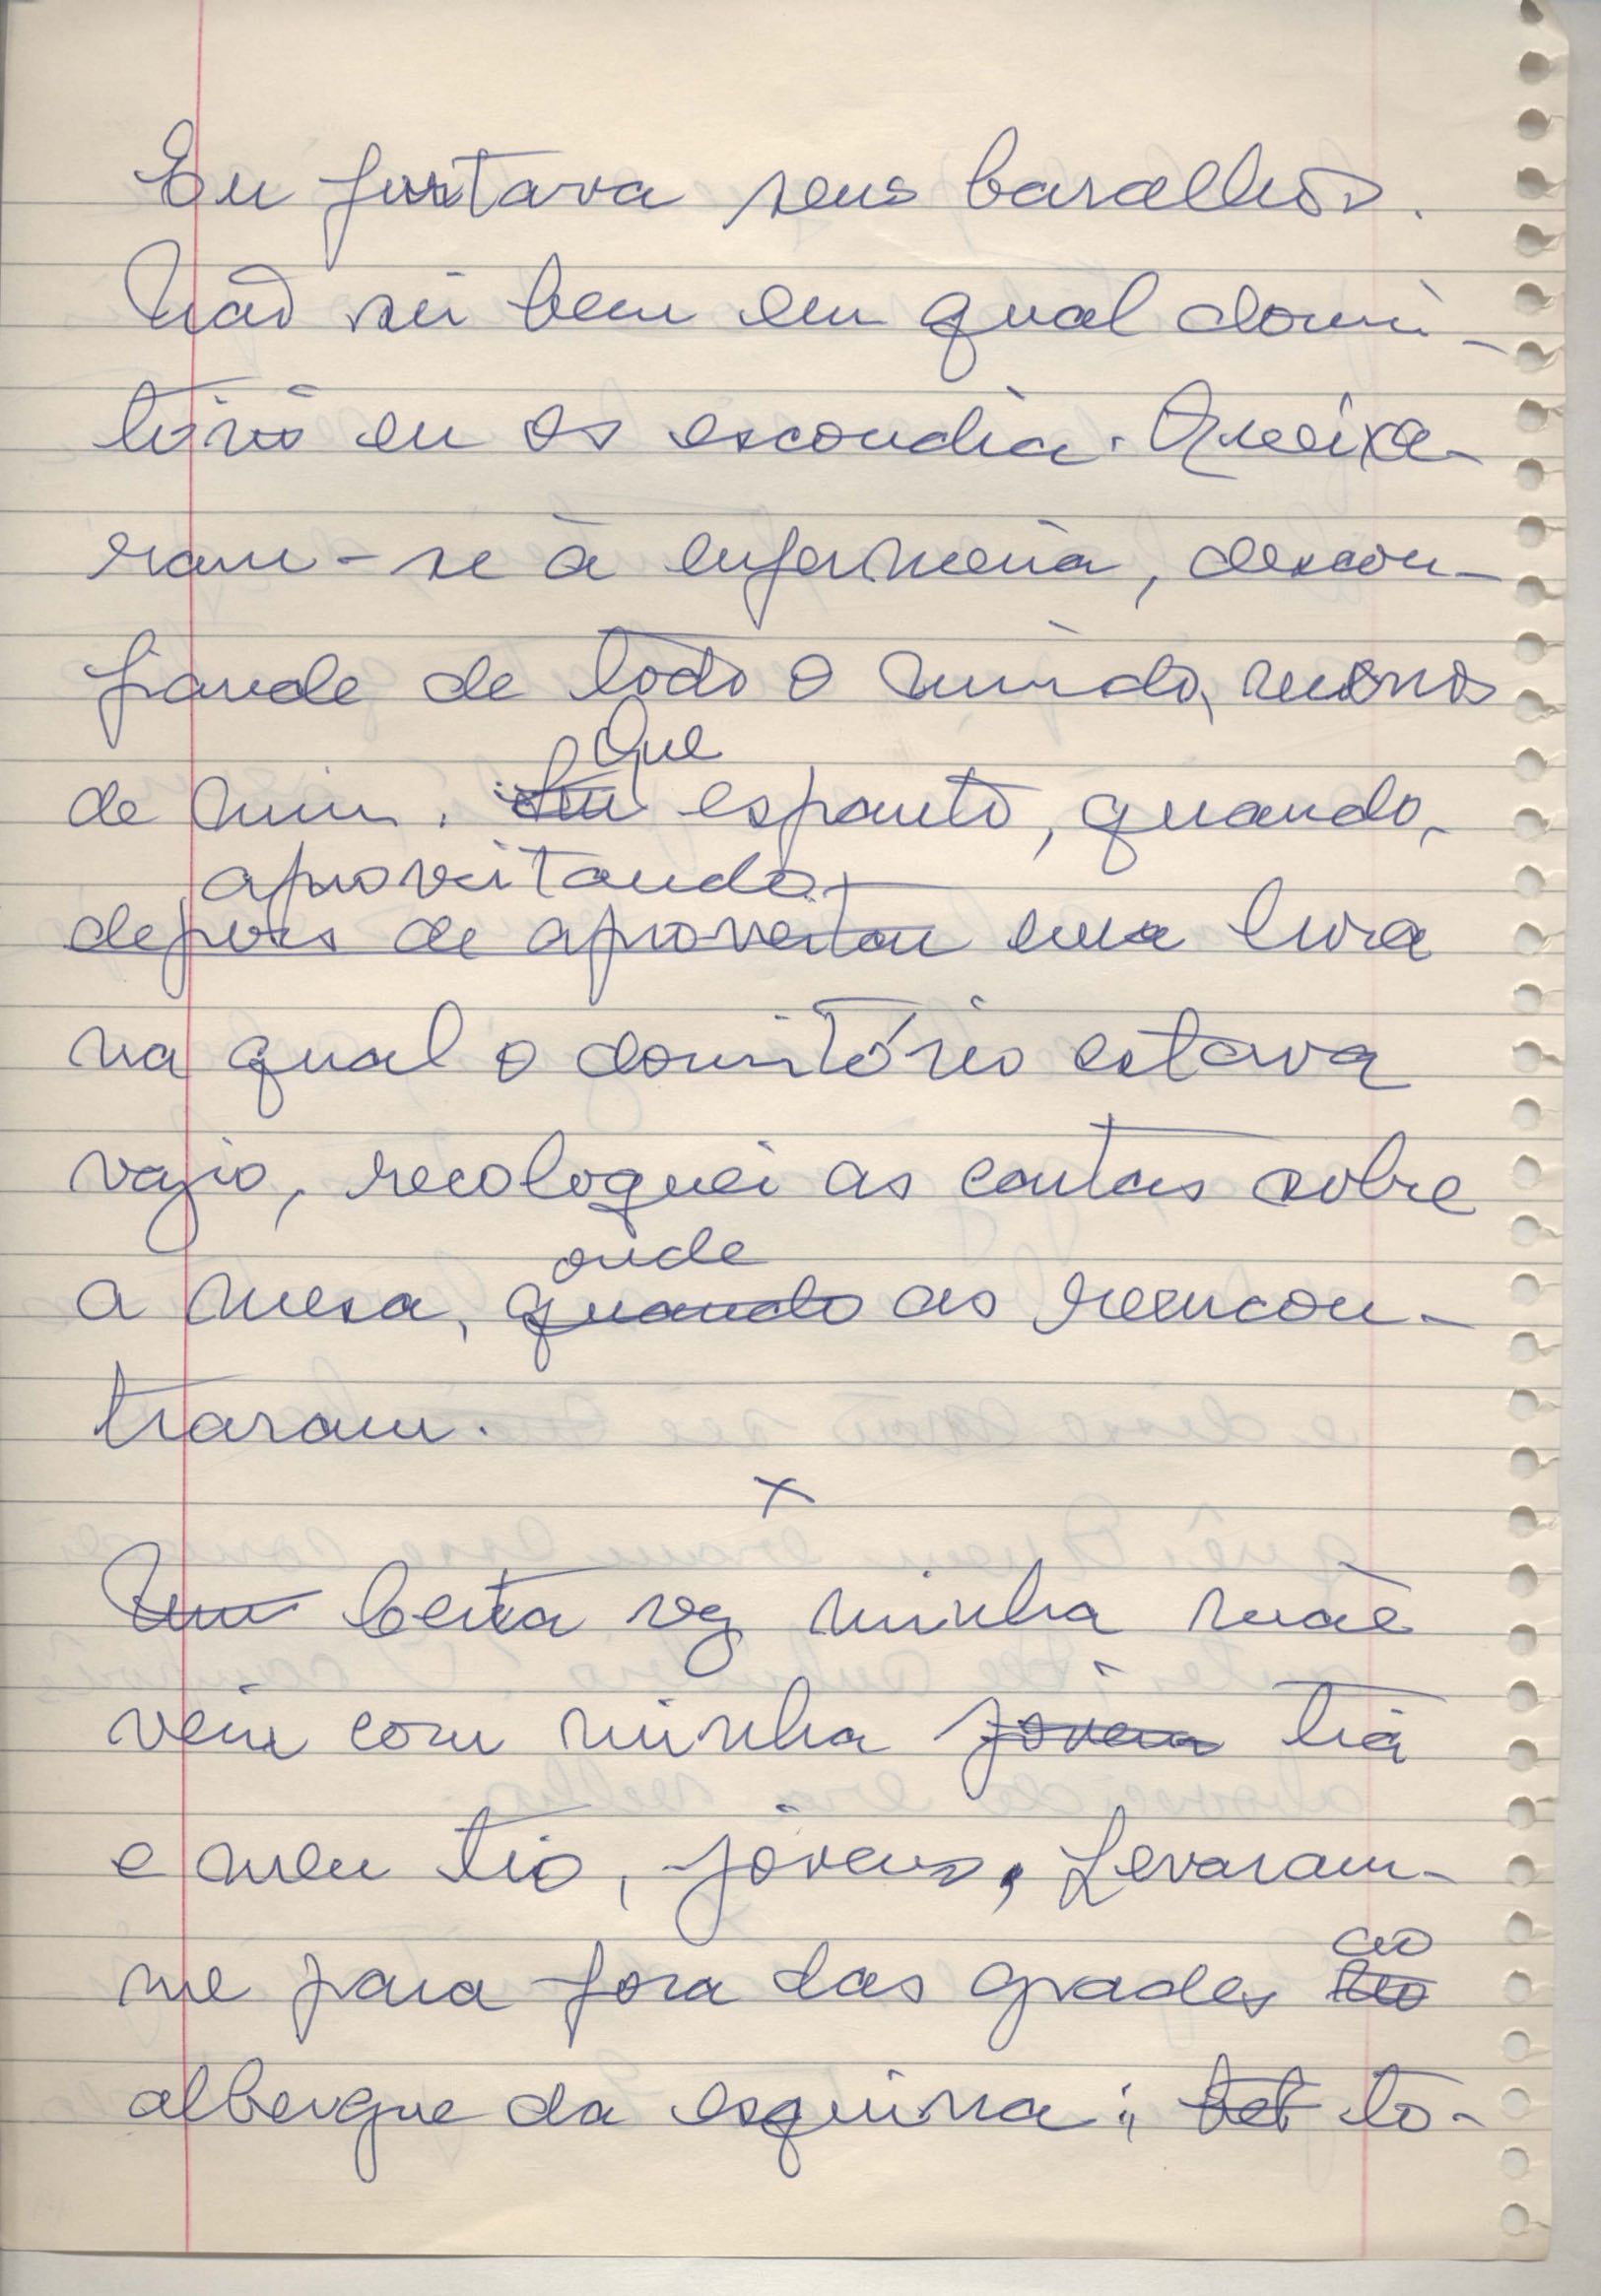 Eu furtava seus baralhos.
Não sei bem em qual dormi-
tório eu os escondia. Queixa-
ram-se à enfermeira, descon-
fiando de todo o mundo, menos
Que
de mim. espanto, quando,
aproveitando
depois de aproveitou uma hora
na qual o dormitório estava
vazio, recoloquei as cartas sobre
onde
a mesa, quando as reencon-
traram.
x
Um Certa vez minha mãe
veio com minha jovem tia
e meu tio, jovens. Levaram-
ao
me para fora das grades no
albergue da esquina; bet to-